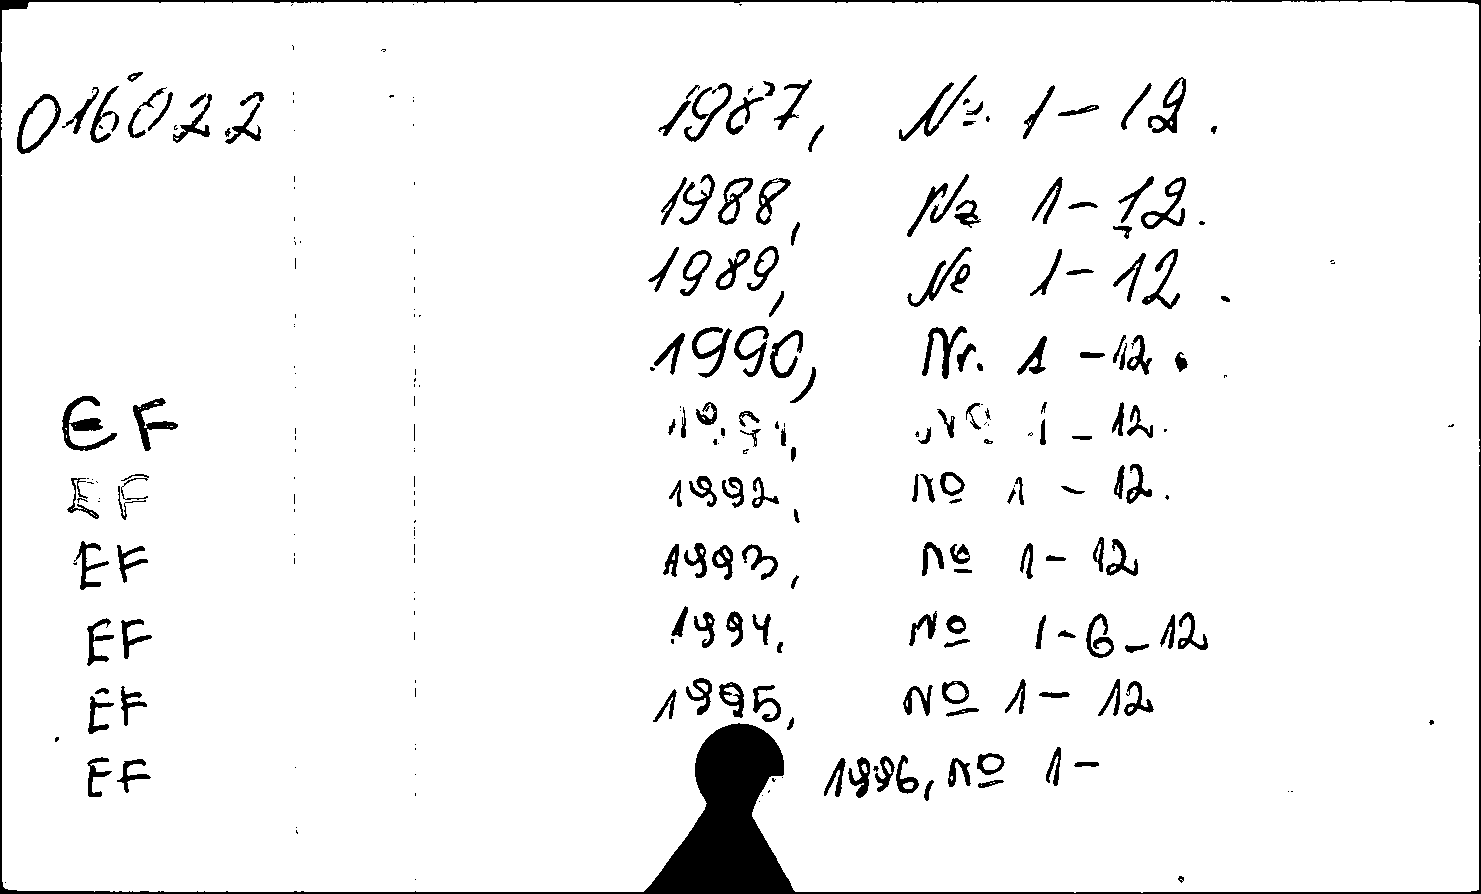 016022 1987, № 1-12.
1988, № 1-12.
1989, № 1-12.
1990, Nr. 1-12.
EF 1991, № 1-12.
EF 1992, № 1-12.
EF 1993, № 1-12
EF 1994, № 1-6-12
EF 1995, № 1-12
EF 1996, № 1-